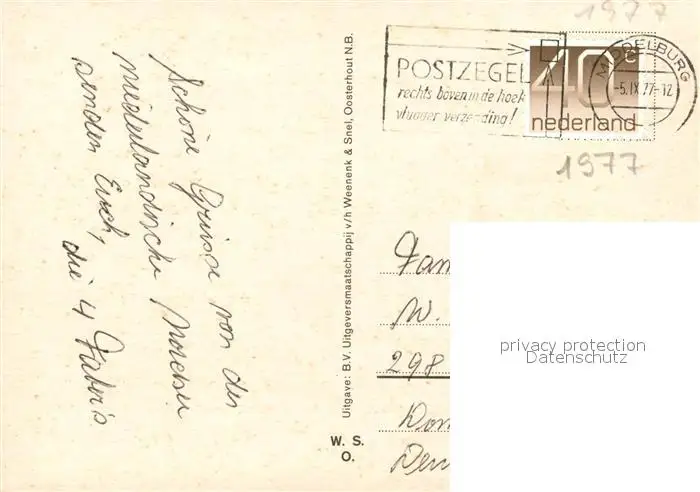 Schöne Grüsse von der
niederländische Nordsee
senden Euch,
die 4 Faber's
Uitgave: B.V. Uitgeversmaatschappij v/h Weenenk & Snel, Oosterhout N.B.
W. S.
O.
1977
POSTZEGEL
rechts boven in de hoek
vlugger verzending!
40c
nederland
MIDDELBURG
-5.IX 77-12
1977
Fam
W.
298
Den
privacy protection
Datenschutz